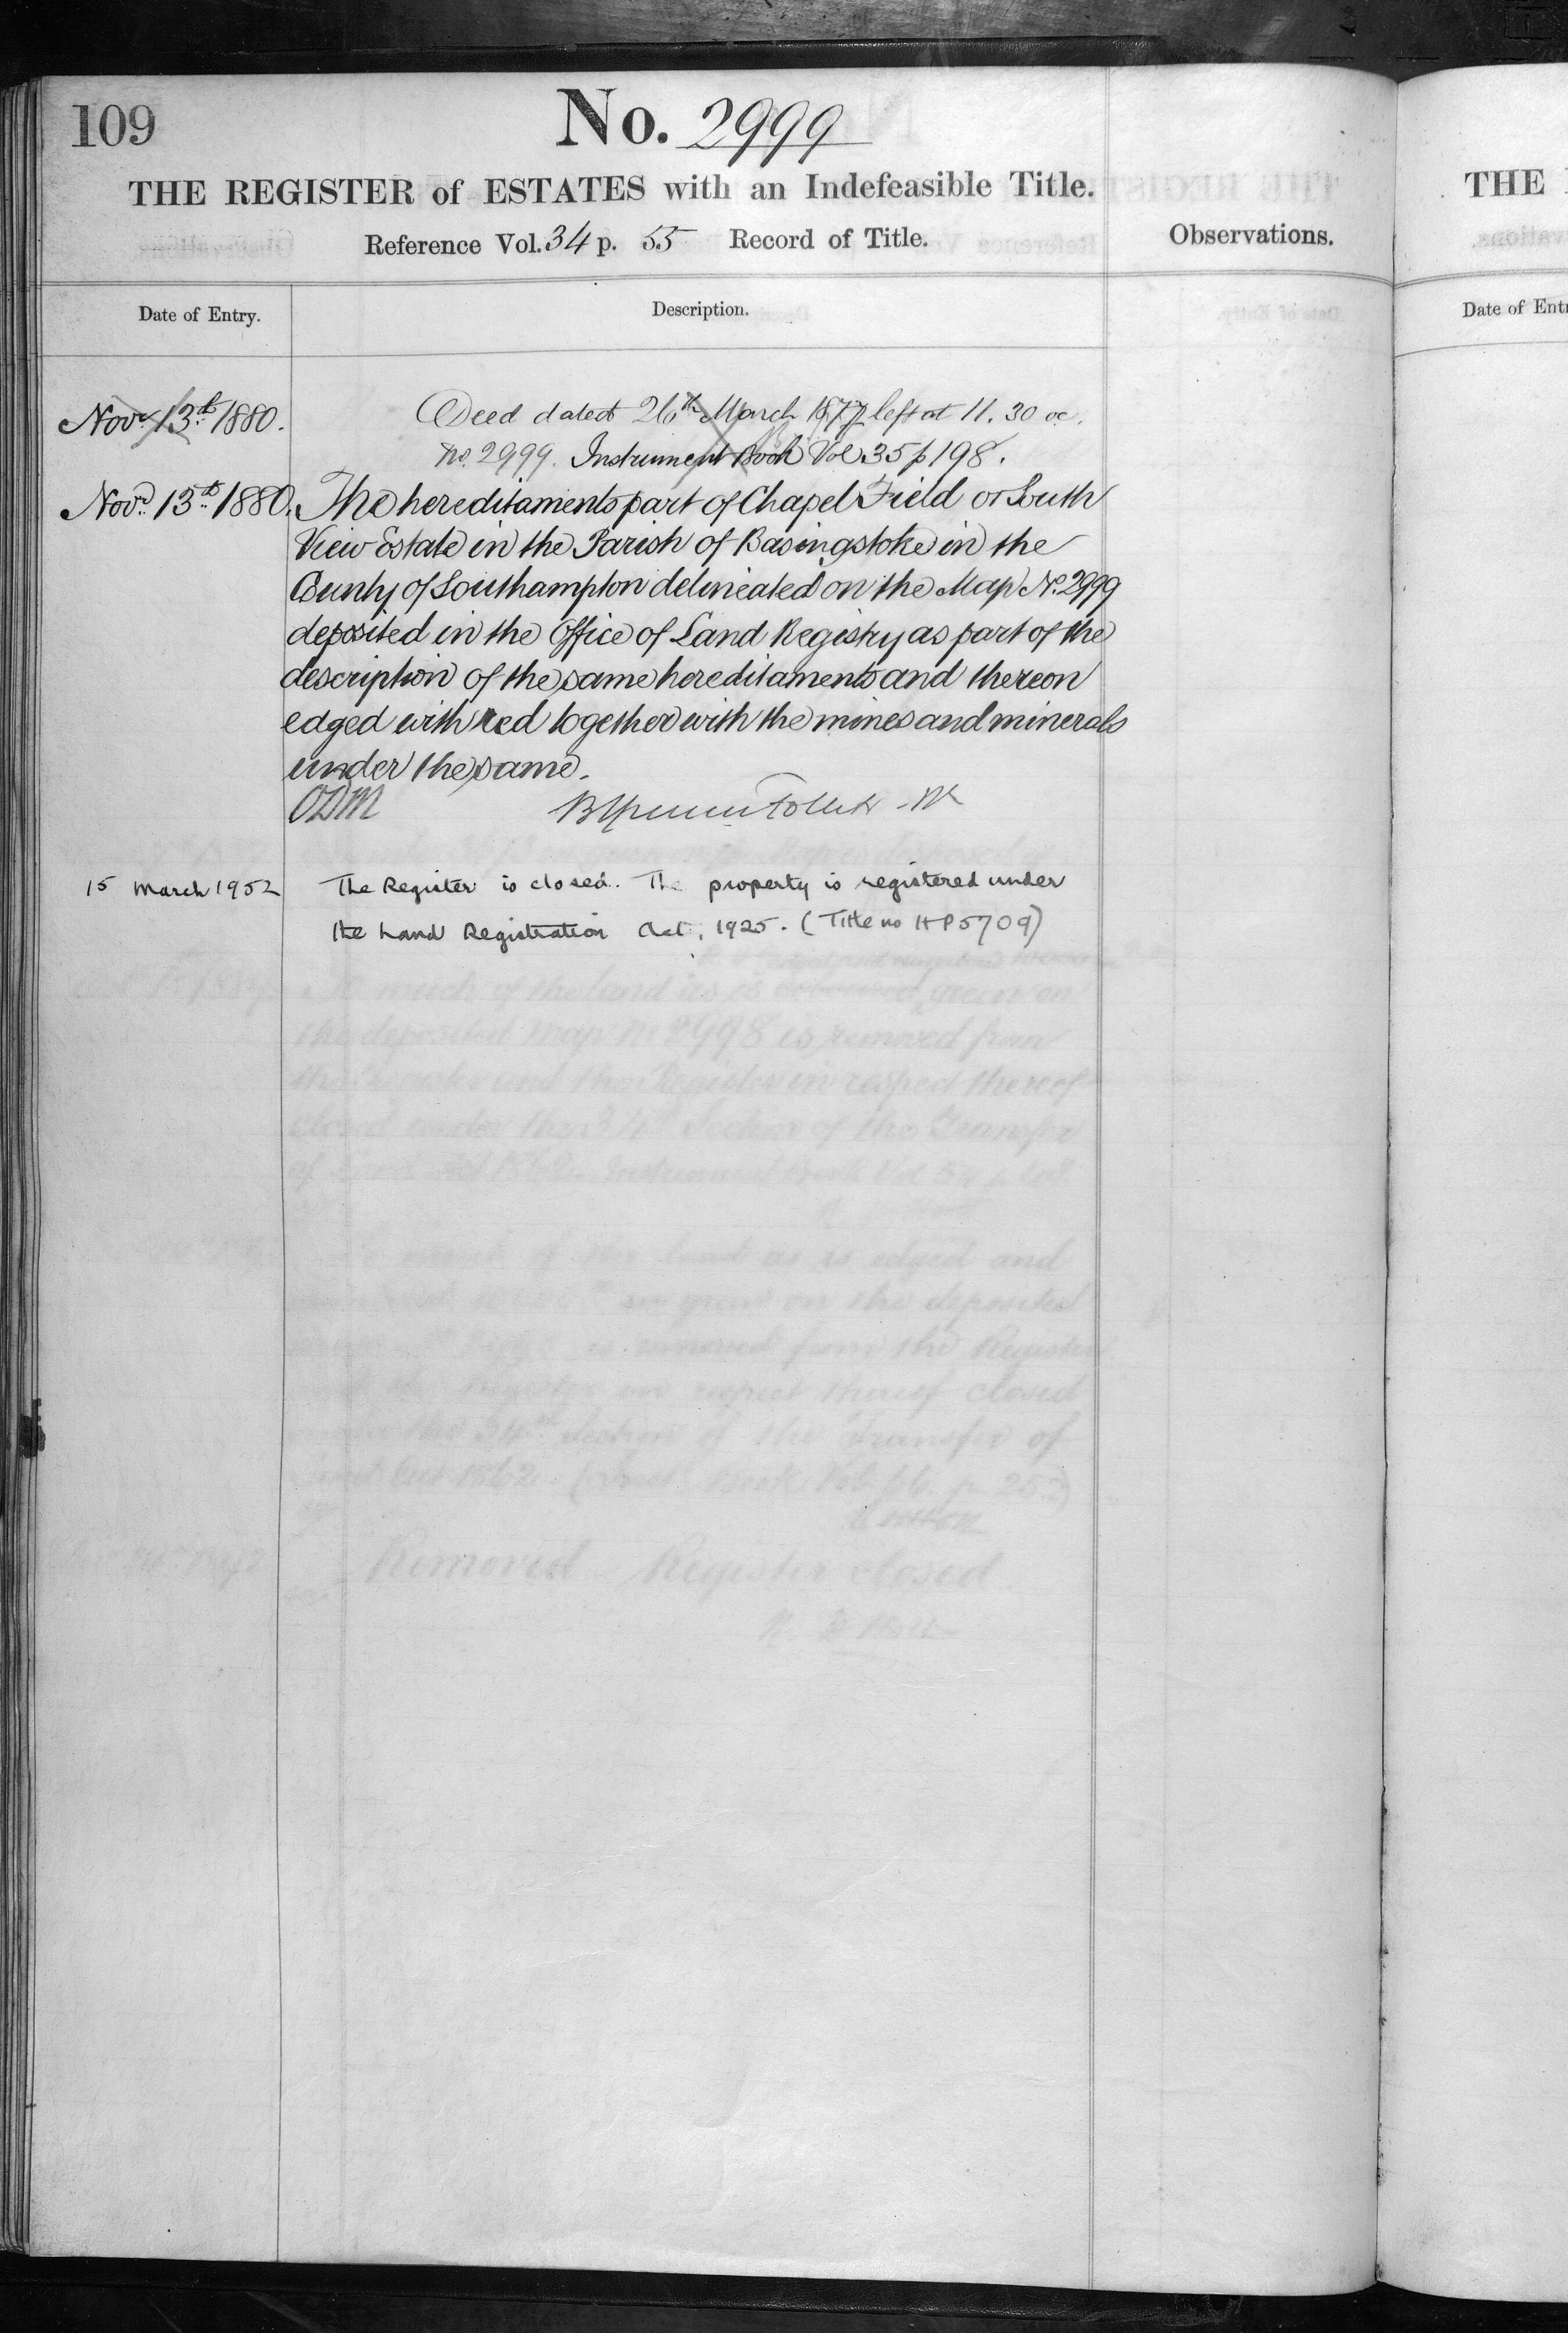 109
No. 2999
THE REGISTER of ESTATES with an Indefeasible Title.
Reference Vol. 34 p. 55 Record of Title.
Observations.
Date of Entry.
Description.
Novr 13th 1880.
Deed dated 26th March 1877 left at 11.30 oc.
No. 2999. Instrument Book Vol 35 p 198.
Novr 13th 1880. The hereditaments part of Chapel Field or South
View Estate in the Parish of Basingstoke in the
County of Southampton delineated on the Map No. 2999
deposited in the Office of Land Registry as part of the
description of the same hereditaments and thereon
edged with red together with the mines and minerals
under the same.
ODM
15 March 1952 The Register is closed. The property is registered under
the Land Registration Act, 1925. (Title no HP5709)
THE
Date of Ent